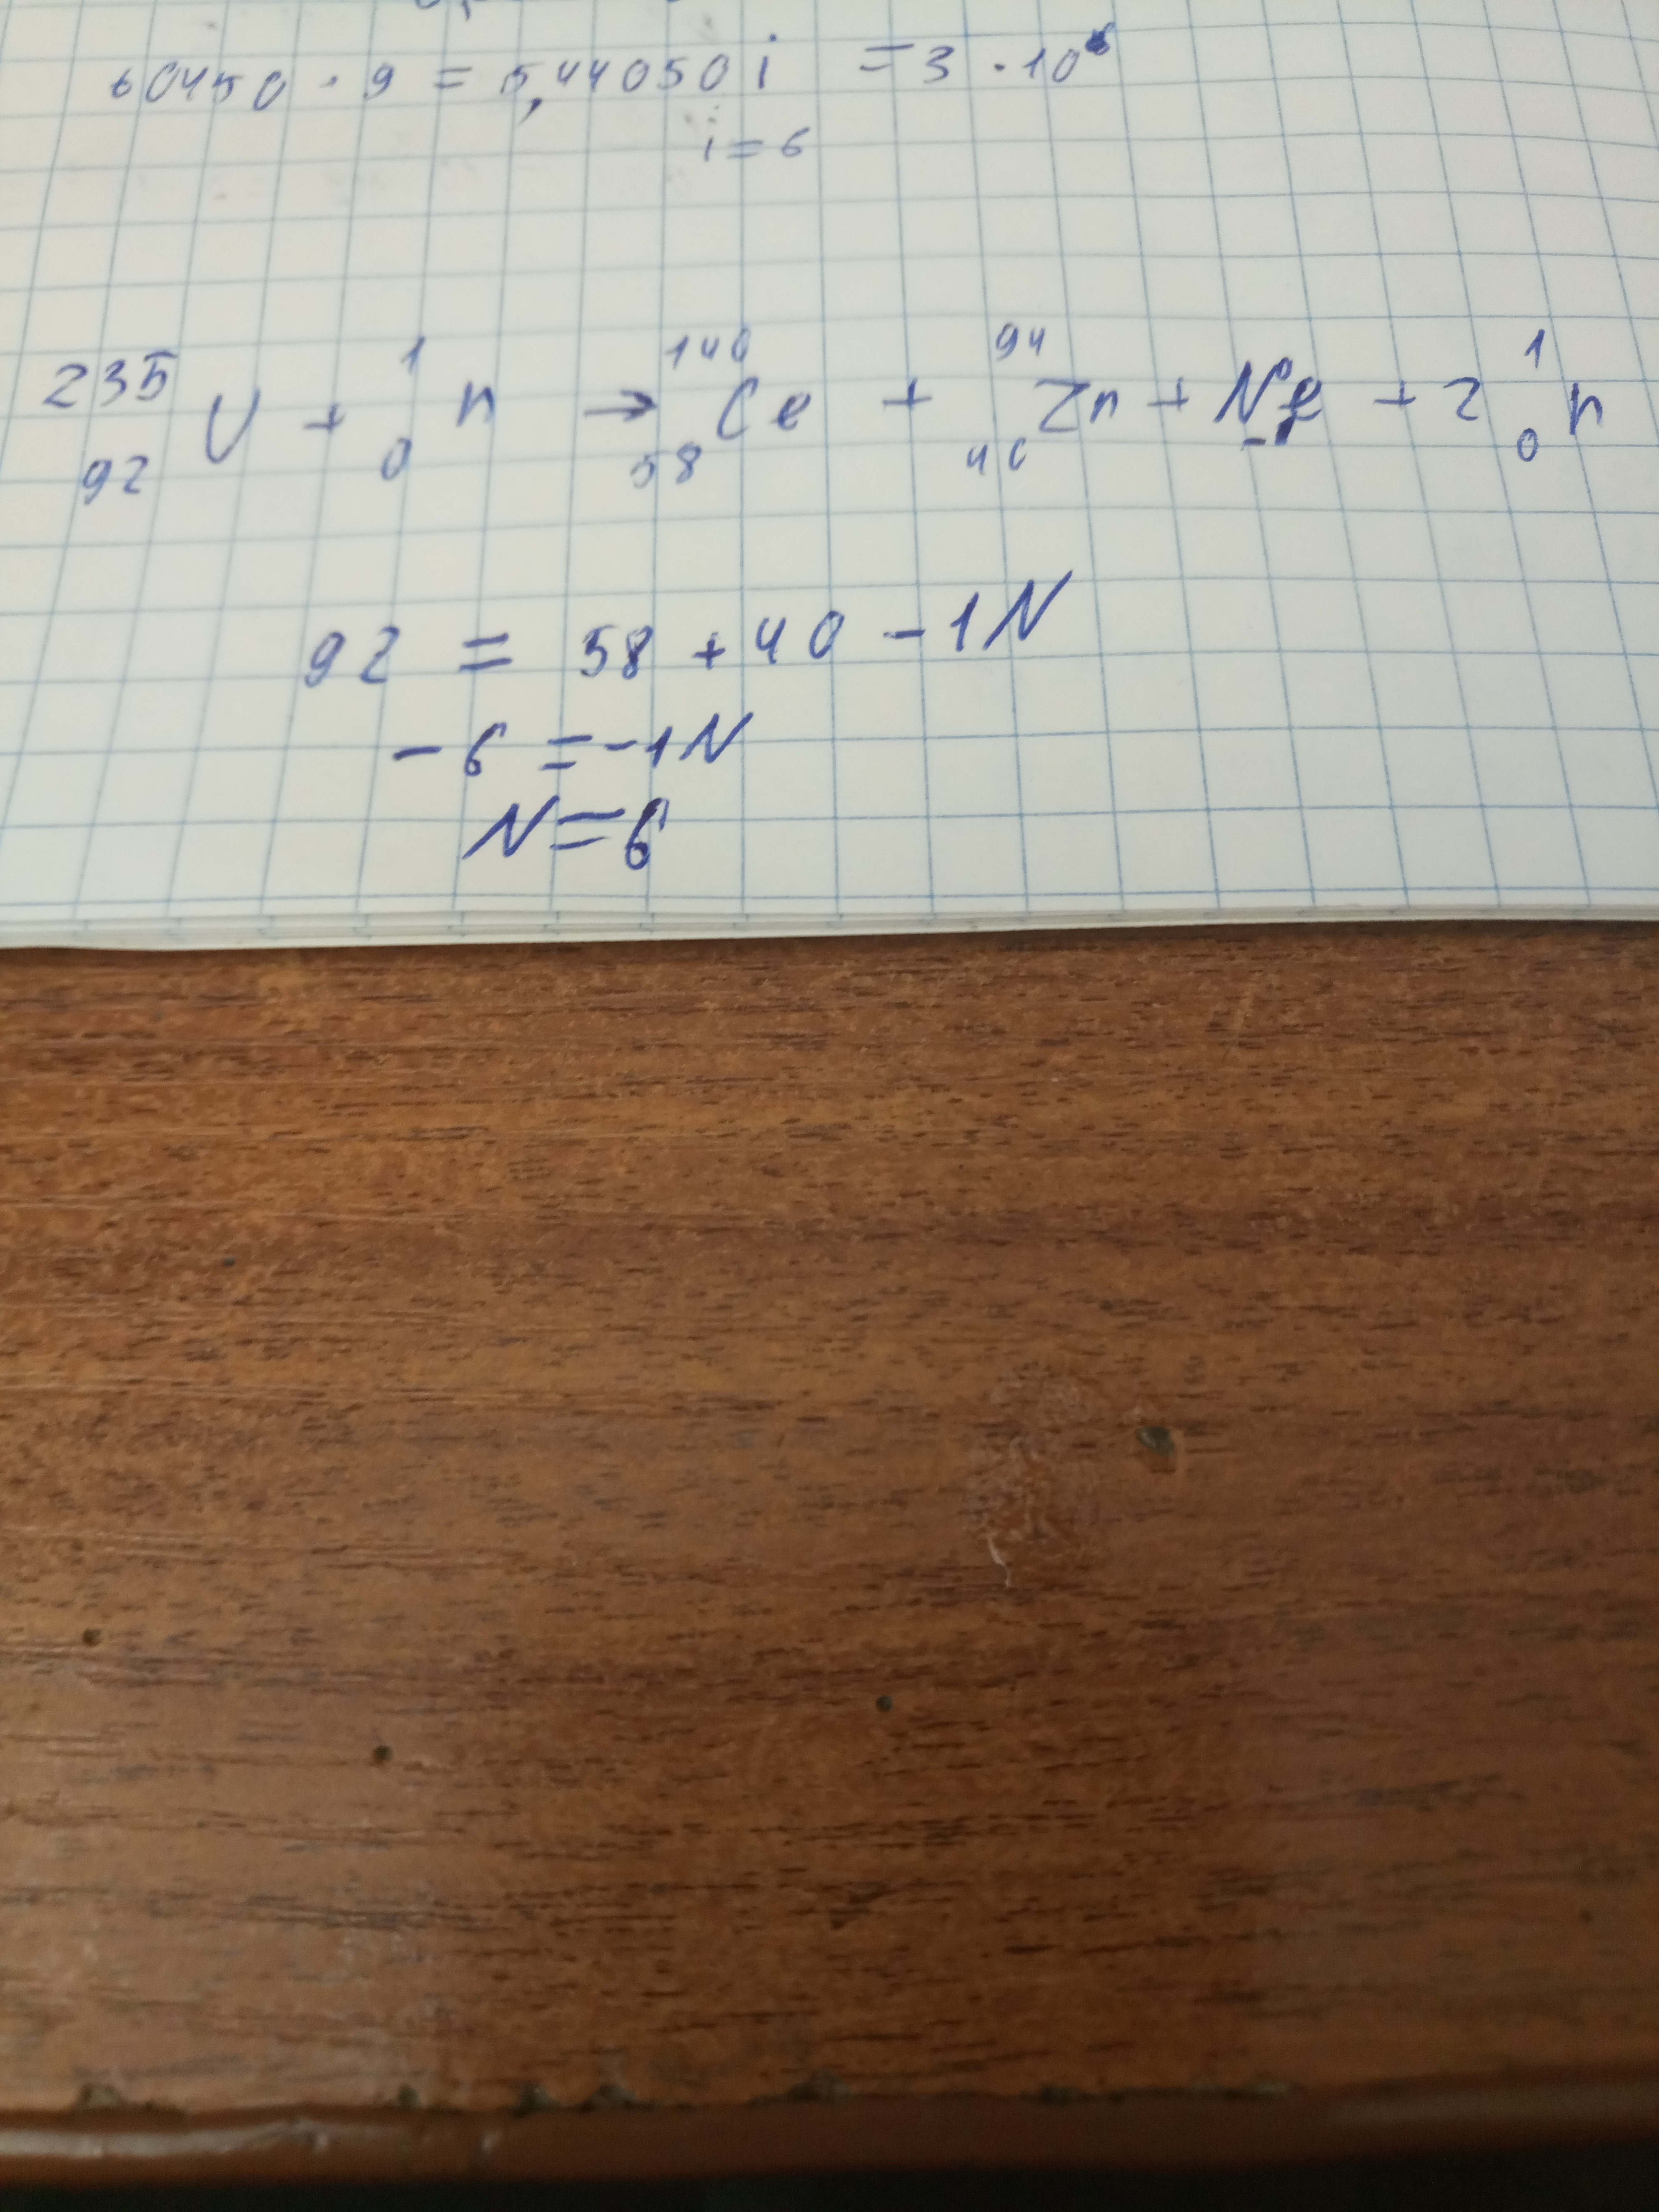 60450 · 9 = 5,44050 i = 3 · 10⁶
i = 6
²³⁵₉₂U + ¹₀n → ¹⁴⁰₅₈Ce + ⁹⁴₄₀Zn + N⁰₋₁e + 2 ¹₀n
92 = 58 + 40 - 1N
- 6 = - 1N
N = 6